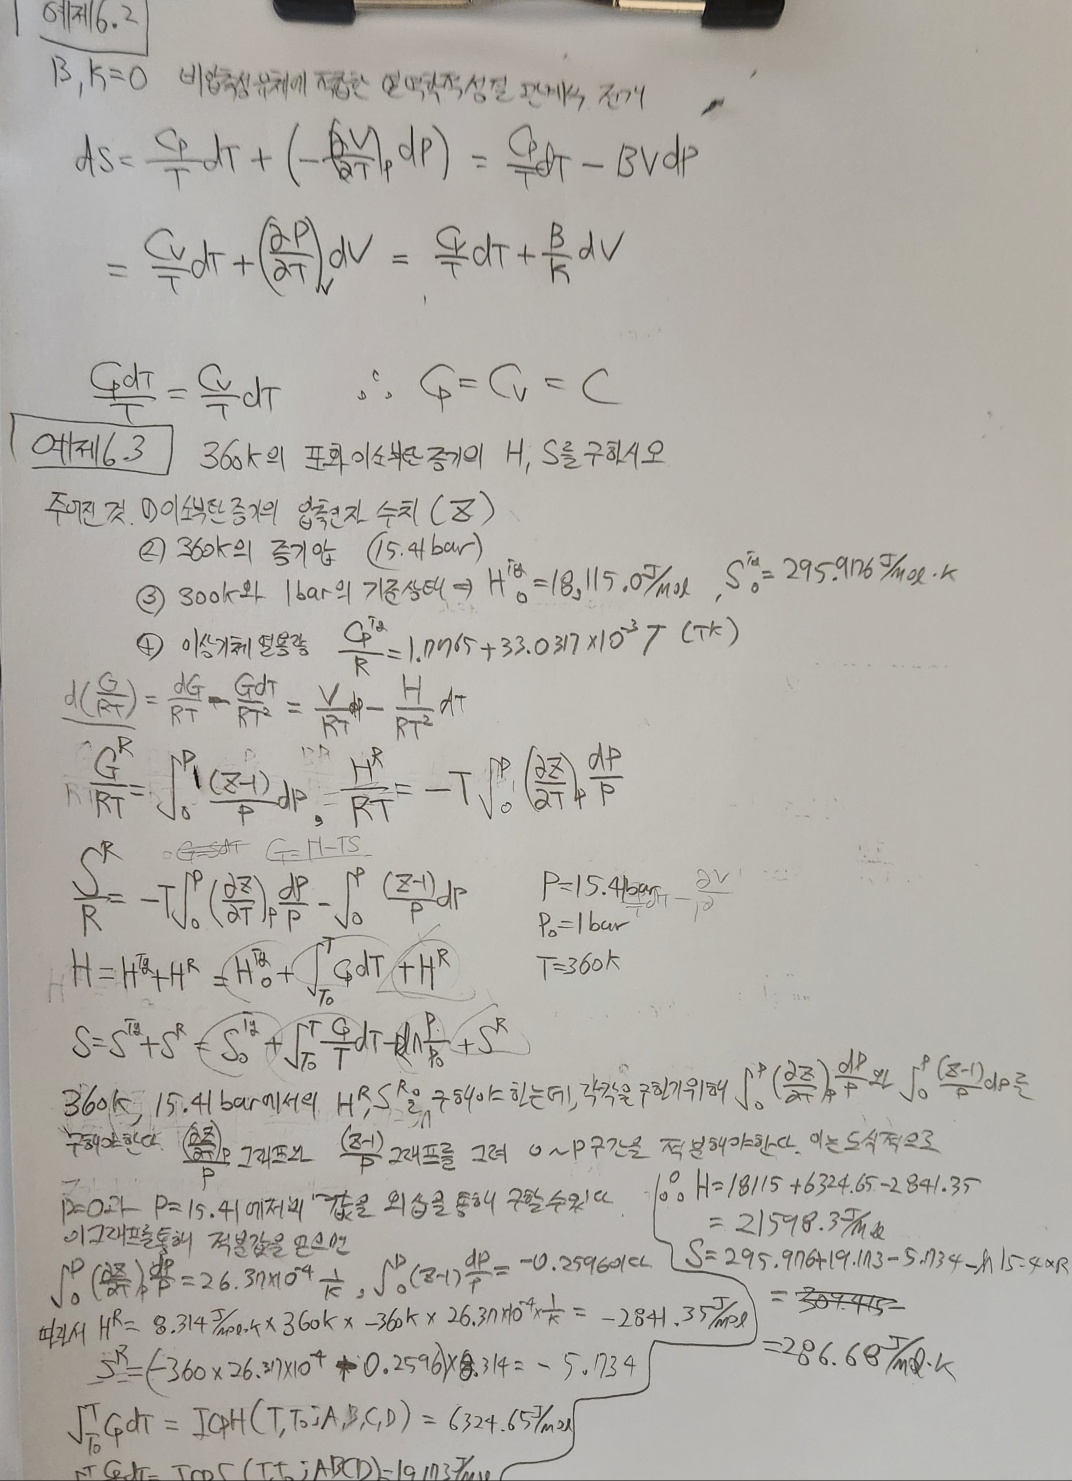 예제6.2
B, K=0 비압축성유체에 적합한 열역학적성질 관계식 전개
dS = Cp/T dT + (-(∂V/∂T)P dP) = Cp/T dT - BVdP
= Cv/T dT + (∂P/∂T)V dV = Cv/T dT + B/K dV
CpdT/T = Cv/T dT ∴ Cp = Cv = C
예제6.3 360K의 포화이소부탄증기의 H, S를 구하시오
주어진 것. ①이소부탄증기의 압축인자 수치 (Z)
② 360K의 증기압 (15.41bar)
③ 300K와 1bar의 기준상태 ⇒ H₀^ig = 18,115.0 J/mol, S₀^ig = 295.976 J/mol·K
④ 이상기체 열용량 Cp^ig/R = 1.7765 + 33.0317×10⁻³ T (TK)
d(G/RT) = dG/RT - GdT/RT² = V/RT dP - H/RT² dT
G^R/RT = ∫₀^P (Z-1)/P dP, H^R/RT = -T∫₀^P (∂Z/∂T)P dP/P
G=H-TS
S^R/R = -T∫₀^P (∂Z/∂T)P dP/P - ∫₀^P (Z-1)/P dP
P=15.41bar
P₀=1bar
T=360K
H = H^ig + H^R = H₀^ig + ∫T₀^T CpdT + H^R
S = S^ig + S^R = S₀^ig + ∫T₀^T Cp/T dT - Rln P/P₀ + S^R
360K, 15.41bar에서의 H^R, S^R을 구해야 하는데, 각각을 구하기위해 ∫₀^P (∂Z/∂T)P dP/P 와 ∫₀^P (Z-1)/P dP를
구해야한다. (∂Z/∂T)P/P 그래프와 (Z-1)/P 그래프를 그려 0~P구간을 적분해야한다. 이는 도식적으로
P=0과 P=15.41에서의 값을 외삽을 통해 구할수있다
이그래프를통해 적분값을 얻으면
∫₀^P (∂Z/∂T)P dP/P = 26.37×10⁻⁴ 1/K, ∫₀^P (Z-1) dP/P = -0.2596이다
따라서 H^R = 8.314 J/mol·K × 360K × -360K × 26.37×10⁻⁴ × 1/K = -2841.35 J/mol
S^R = (-360 × 26.37×10⁻⁴ + 0.2596) × 8.314 = -5.734
∫T₀^T CpdT = ICPH(T, T₀; A, B, C, D) = 6324.65 J/mol
∴ H = 18115 + 6324.65 - 2841.35
= 21598.3 J/mol
S = 295.976 + 19.173 - 5.734 - ln15.4×R
= 286.68 J/mol·K